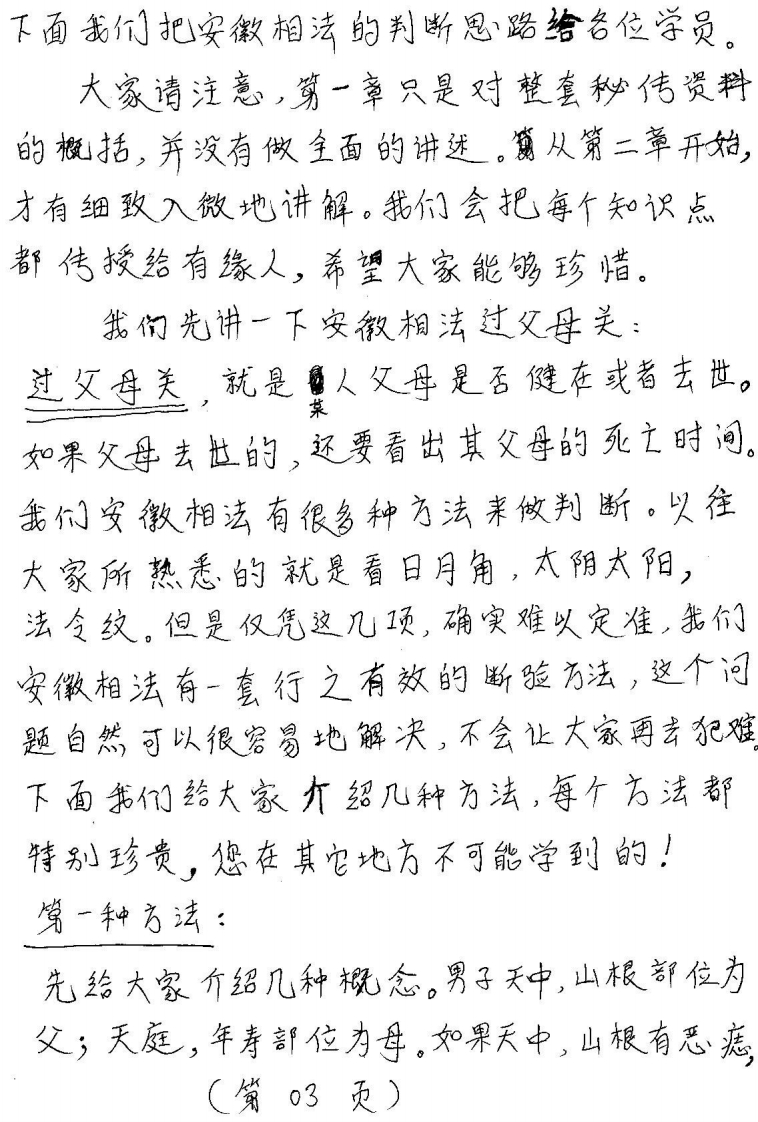 下面我们把安徽相法的判断思路给各位学员。
大家请注意,第一章只是对整套秘传资料
的概括,并没有做全面的讲述。从第二章开始,
才有细致入微地讲解。我们会把每个知识点
都传授给有缘人,希望大家能够珍惜。
我们先讲一下安徽相法过父母关:
过父母关,就是某人父母是否健在或者去世。
如果父母去世的,还要看出其父母的死亡时间。
我们安徽相法有很多种方法来做判断。以往
大家所熟悉的就是看日月角,太阴太阳,
法令纹。但是仅凭这几项,确实难以定准,我们
安徽相法有一套行之有效的断验方法,这个问
题自然可以很容易地解决,不会让大家再去犯难。
下面我们给大家介绍几种方法,每个方法都
特别珍贵,您在其它地方不可能学到的!
第一种方法:
先给大家介绍几种概念。男子天中,山根部位为
父;天庭,年寿部位为母。如果天中,山根有恶痣,
(第 03 页)